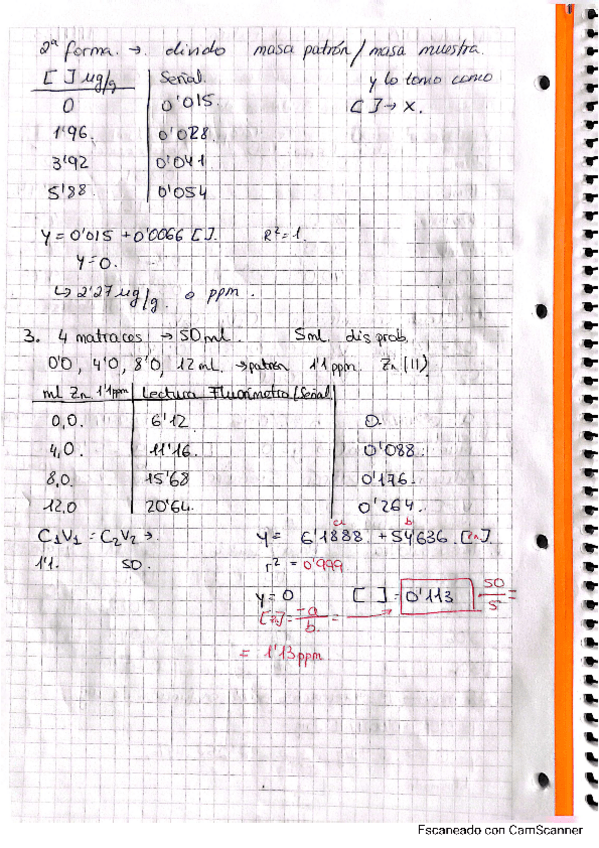 2ª forma. → divido masa patrón / masa muestra.
[ ] ug/g Señal. y lo tomo como
0 0'015. [ ] → x.
1'96. 0'028
3'92 0'041
5'88 0'054
y = 0'015 + 0'0066 [ ]. R² = 1.
y = 0.
↳ 2'27 ug/g. o ppm.
3. 4 matraces → 50 ml. 5 ml. dis prob.
0'0, 4'0, 8'0, 12 ml. → patrón 1'1 ppm. Zn (II)
ml Zn 1'1ppm Lectura Fluorímetro (Señal)
0,0. 6'12 0.
4,0. 11'16. 0'088.
8,0. 15'68 0'176.
12.0 20'64. 0'264.
a b
C₁V₁ = C₂V₂ → y = 6'1888 + 54'636 [Zn].
1'1. 50. r² = 0'999
y = 0 [ ] = 0'113 · 50/5 =
[Zn] = -a/b = →
= 1'13 ppm
Escaneado con CamScanner